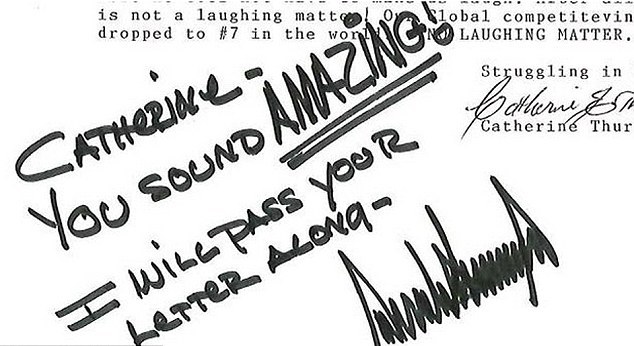 is not a laughing matter! Our Global competitevin
dropped to #7 in the world NO LAUGHING MATTER.
Struggling in
Catherine Thur
CATHERINE-
YOU SOUND AMAZING!
I WILL PASS YOUR
LETTER ALONG-